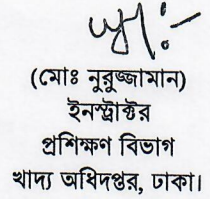 (মোঃ নুরুজ্জামান)
ইনস্ট্রাক্টর
প্রশিক্ষণ বিভাগ
খাদ্য অধিদপ্তর, ঢাকা।